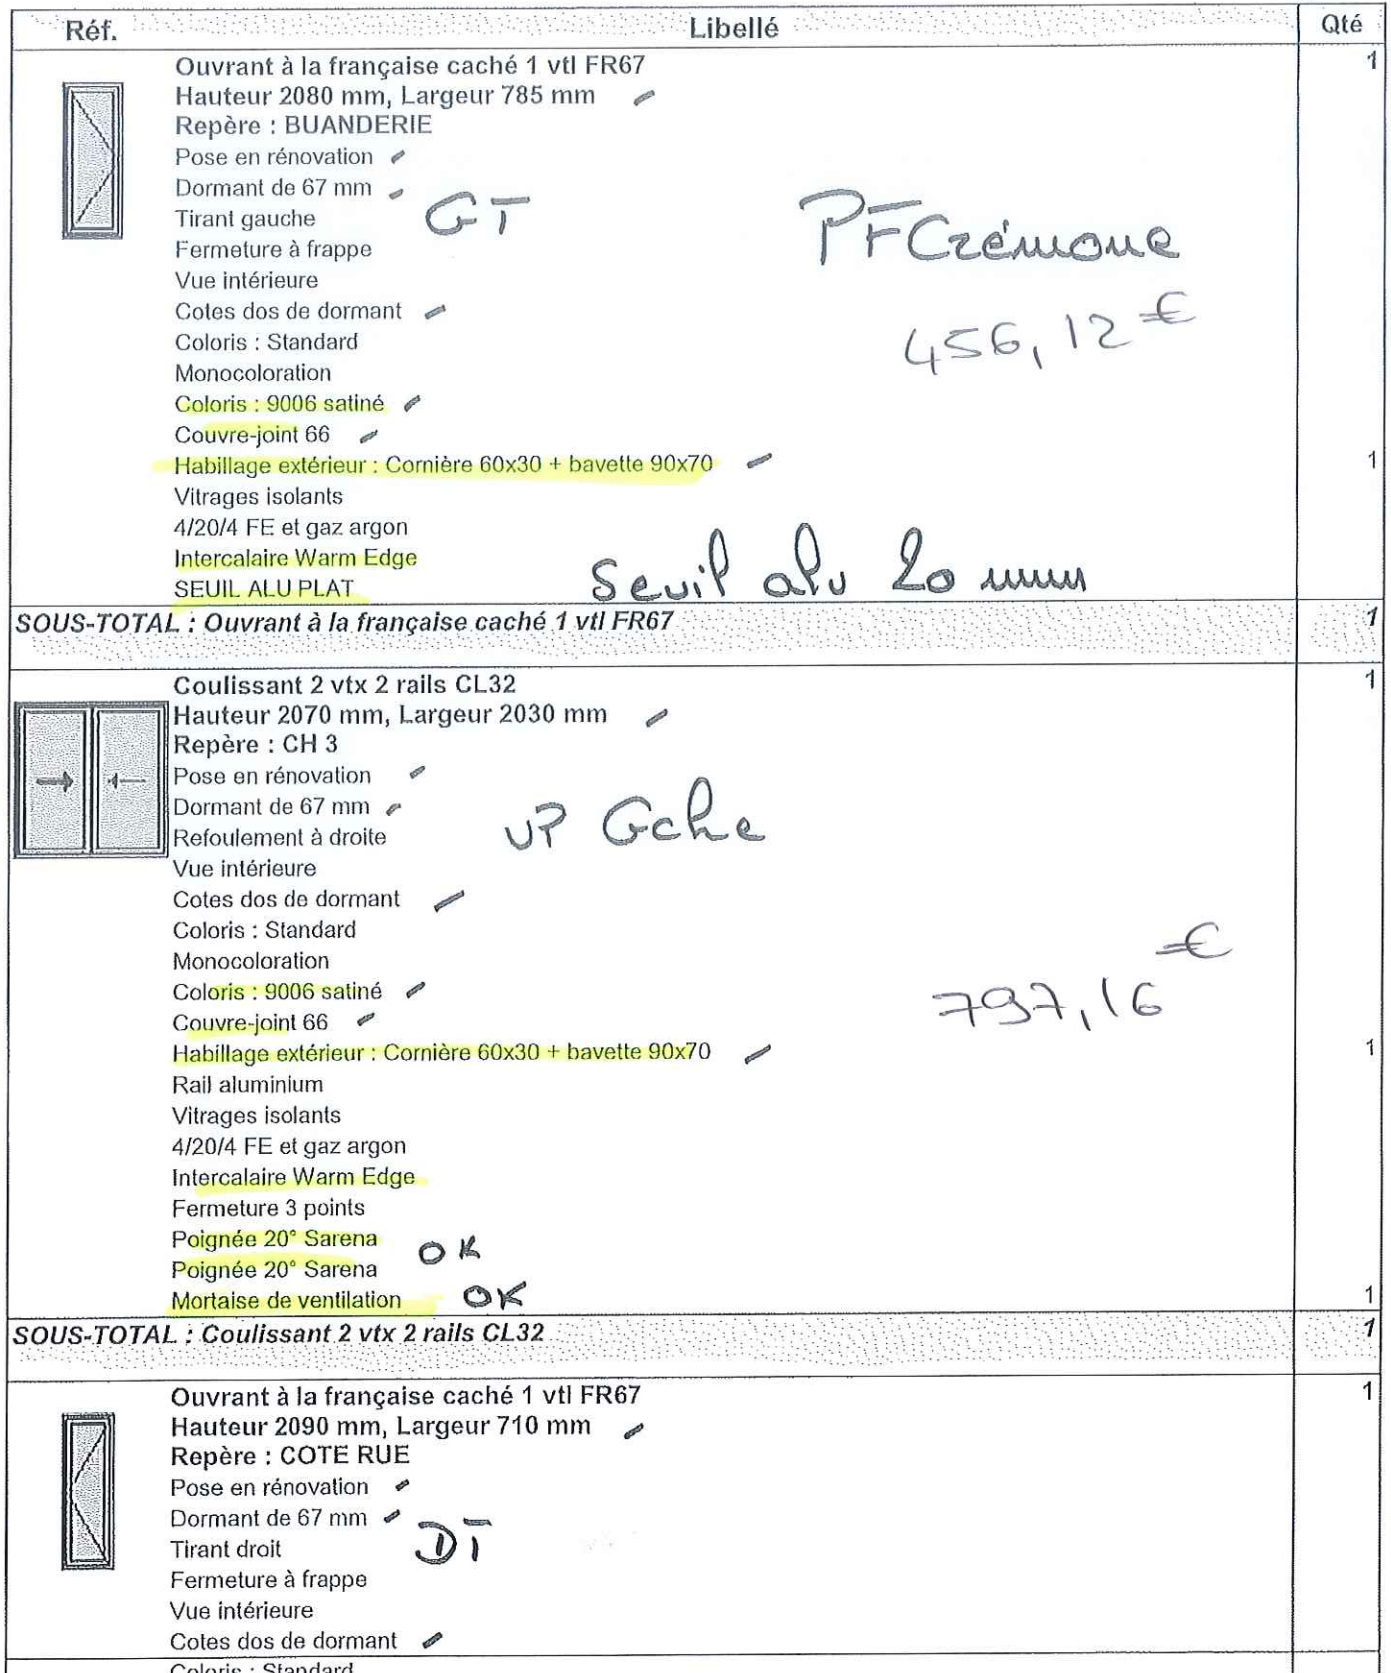 Réf. Libellé Qté
Ouvrant à la française caché 1 vtl FR67 1
Hauteur 2080 mm, Largeur 785 mm
Repère : BUANDERIE
Pose en rénovation
Dormant de 67 mm
GT
PF Crémone
Tirant gauche
Fermeture à frappe
Vue intérieure
Cotes dos de dormant
456,12 €
Coloris : Standard
Monocoloration
Coloris : 9006 satiné
Couvre-joint 66
Habillage extérieur : Cornière 60x30 + bavette 90x70 1
Vitrages isolants
4/20/4 FE et gaz argon
Intercalaire Warm Edge
SEUIL ALU PLAT
Seuil alu 20 mm
SOUS-TOTAL : Ouvrant à la française caché 1 vtl FR67 1
Coulissant 2 vtx 2 rails CL32 1
Hauteur 2070 mm, Largeur 2030 mm
Repère : CH 3
Pose en rénovation
Dormant de 67 mm
VP Gche
Refoulement à droite
Vue intérieure
Cotes dos de dormant
Coloris : Standard
Monocoloration
Coloris : 9006 satiné
797,16 €
Couvre-joint 66
Habillage extérieur : Cornière 60x30 + bavette 90x70 1
Rail aluminium
Vitrages isolants
4/20/4 FE et gaz argon
Intercalaire Warm Edge
Fermeture 3 points
Poignée 20° Sarena OK
Poignée 20° Sarena
Mortaise de ventilation OK 1
SOUS-TOTAL : Coulissant 2 vtx 2 rails CL32 1
Ouvrant à la française caché 1 vtl FR67 1
Hauteur 2090 mm, Largeur 710 mm
Repère : COTE RUE
Pose en rénovation
Dormant de 67 mm
DT
Tirant droit
Fermeture à frappe
Vue intérieure
Cotes dos de dormant
Coloris : Standard